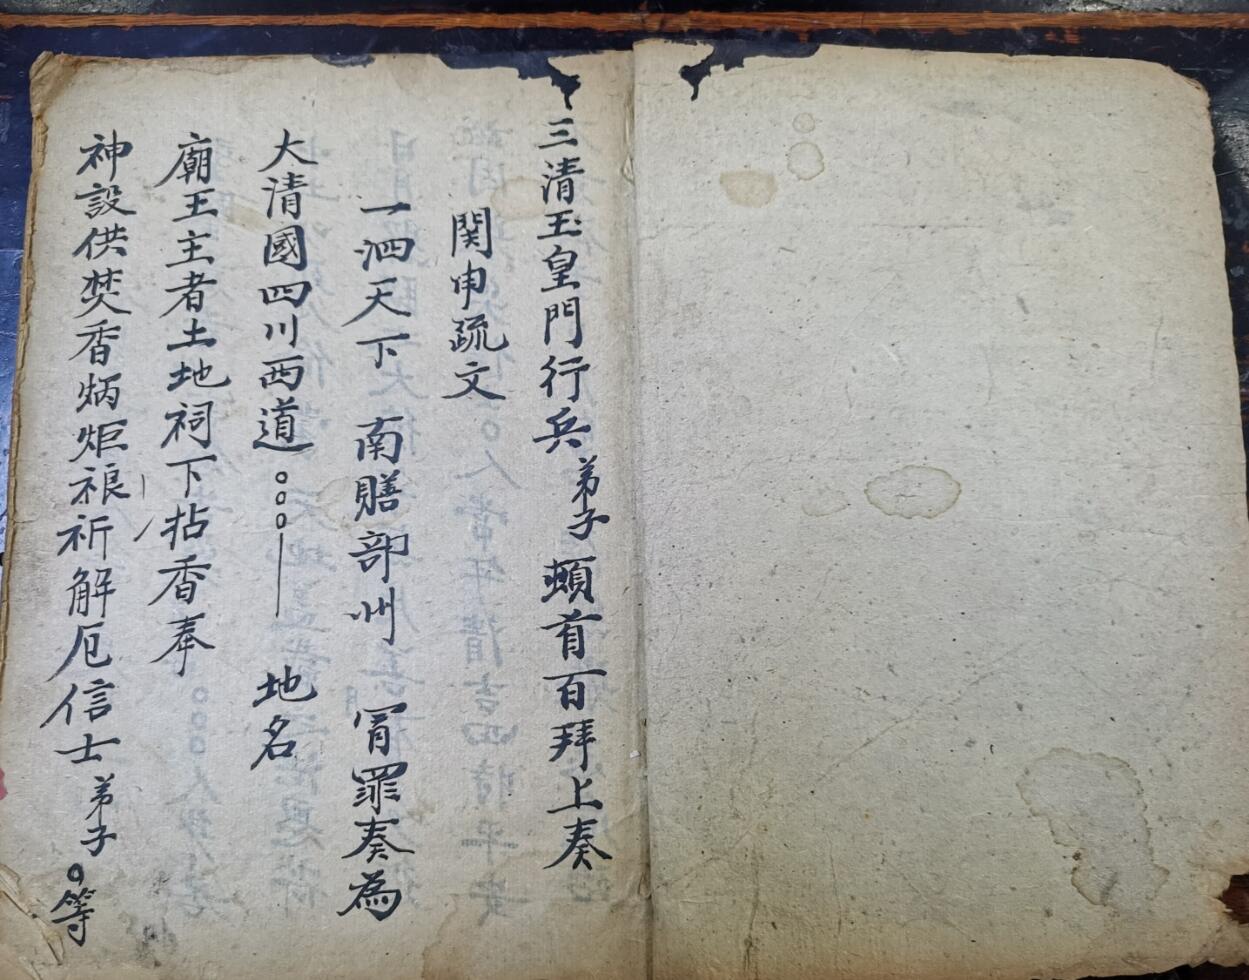 三清玉皇門行兵弟子頓首百拜上奏
関申疏文
一泗天下 南贍部州 冐罪奏為
大清國四川西道○○○ 地名
廟王主者土地祠下拈香奉
神設供焚香炳炬祈解厄信士弟子○等